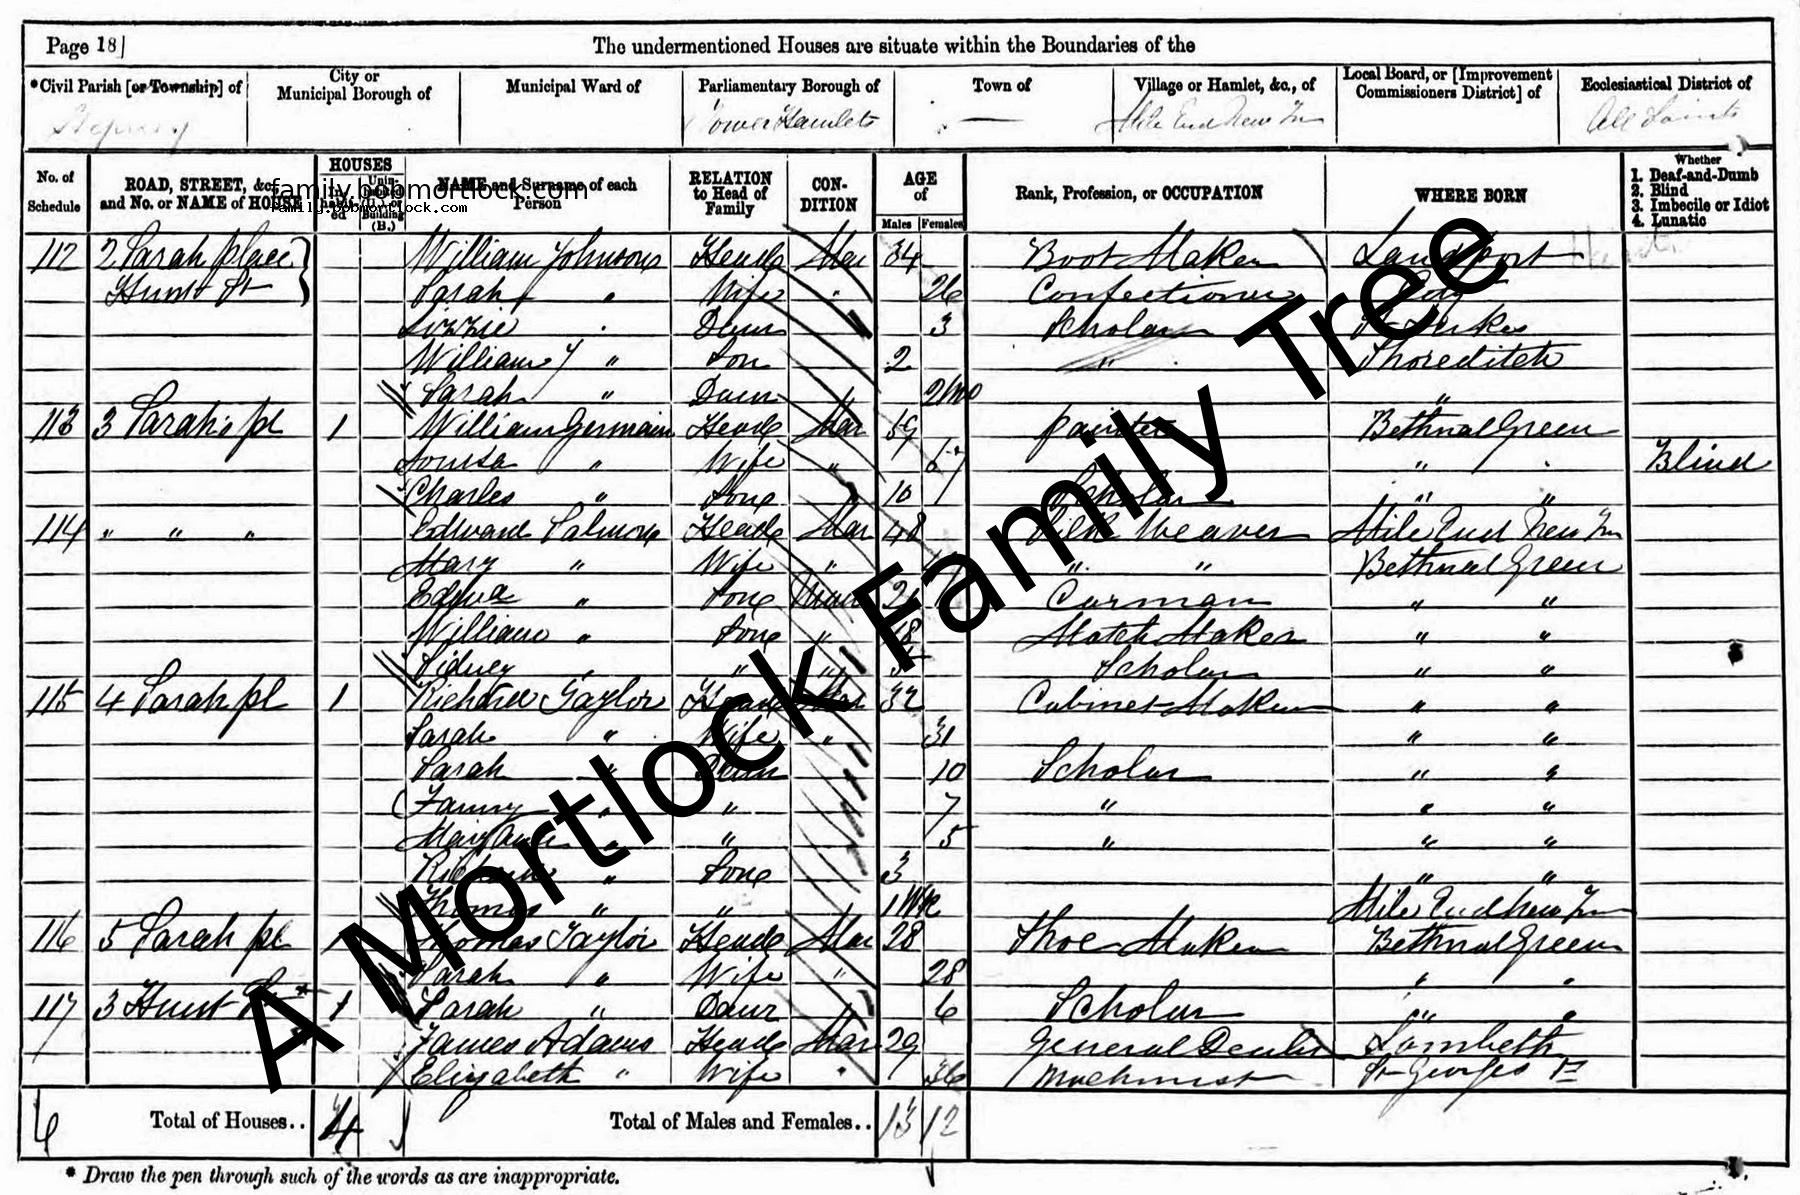 Page 18]
The undermentioned Houses are situate within the Boundaries of the
*Civil Parish [or Township] of
City or Municipal Borough of
Municipal Ward of
Parliamentary Borough of
Town of
Village or Hamlet, &c., of
Local Board, or [Improvement Commissioners District] of
Ecclesiastical District of
Stepney Tower Hamlets — Mile End New Tn All Saints
No. of Schedule
ROAD, STREET, &c., and No. or NAME of HOUSE
HOUSES
NAME and Surname of each Person
RELATION to Head of Family
CONDITION
AGE of
Males Females
Rank, Profession, or OCCUPATION
WHERE BORN
Whether
1. Deaf-and-Dumb
2. Blind
3. Imbecile or Idiot
4. Lunatic
family.bobmortlock.com
family.bobmortlock.com
112 2 Sarah place William Johnson Head Mar 34 Boot Maker Landport Hants
Hunt St Sarah " Wife " 26 Confectioner
Lizzie " Daur 3 Scholar St Lukes
William J " Son 2 " Shoreditch
Sarah " Daur 2/mo "
113 3 Sarah's pl 1 William Germain Head Mar 59 painter Bethnal Green
Louisa " Wife " " Blind
Charles " Son " 10 Scholar " "
114 " " " Edward Salmon Head Mar 48 Silk Weaver Mile End New Tn
Mary " Wife " " " Bethnal Green
" Son Unm Carman " "
William " Son " 18 Match Maker " "
Sidney " " " Scholar " "
115 4 Sarah pl 1 Richard Taylor Head Mar 32 Cabinet Maker " "
Sarah " Wife " 31 " "
Sarah " Daur 10 Scholar " "
Fanny " " 7 " " "
Mary Ann " " 5 " " "
" Son 3 " "
Thomas " " 1 Wk Mile End New Tn
116 5 Sarah pl 1 Thomas Taylor Head Mar 28 Shoe Maker Bethnal Green
Sarah " Wife " 28 " "
117 3 Hunt St 1 Sarah " Daur 6 Scholar " "
James Adams Head Mar 29 General Dealer Lambeth
Elizabeth " Wife " 36 Machinist St Georges Et
6 Total of Houses.. 4 Total of Males and Females.. 13 12
* Draw the pen through such of the words as are inappropriate.
A Mortlock Family Tree